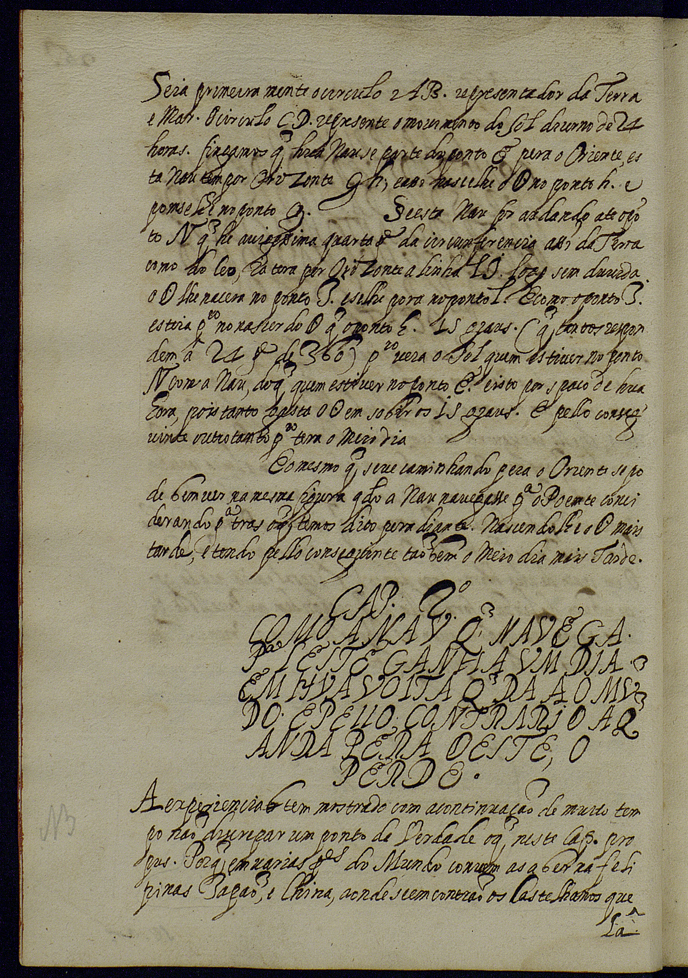 Seia primeira mente o circulo 2 A B. representador da Terra
e Mar. O circulo C.D. represente o movimento do Sol diurno de 24
horas. finjamos q̃ hũa Nau se parte do ponto E pera o Oriente, es
ta Nau tem por Orizonte g h, e ao nascelhe o O no ponto h. e
pomselhe no ponto g. Se esta Nau for andando ate o pō
to N q̃ he a vigessima quarta pᵉ da circunferencia assi da Terra
como do Ceo, e a tera por Orizonte a linha I J. logo sem duvida
o O lhe nacera no ponto J. e selhe pora no ponto I. E como o ponto J.
esteia pʳᵒ no nascer do O q̃ o ponto h. 15 graus. (q̃ tantos respon
dem a 24 pᵉ de 360) pʳᵒ vera o Sol quem estiver no ponto
N com a Nau, do q̃ quem estiver no ponto E. e isto por spaço de hũa
hora, pois tanto gasta o O em sobir os 15 graus. E pello conseq̃
uinte outro tanto pʳᵒ tera o Meio dia
E o mesmo q̃ seve caminhando pera o Oriente se po
de bem ver na mesma figura qdo a Nau navegasse pª o Poente consi
derando pª tras o q̃ temos dito pera diante. Nascendolhe o O mais
tarde, e tendo pello conseguinte tão bem o Meio dia mais Tarde.
CAP. 2º
COMO A NAV Q̃ NAVEGA
Pª LESTE GANHA VM DIA
EM HVA VOLTA Q̃ DA AO MṼ
DO. E PELLO CONTRARIO A Q̃
ANDA PERA OESTE, O
PERDE.
A experiencia tem mostrado com a continuação de muito tem
po não discrepar um ponto da Verdade o q̃ neste Cap. pro
pus. Porq̃ em varias pᵉˢ do Mundo convem a saber na feli
pinas Japão, e China, aonde se encontrão os Castelhanos que
La
NB